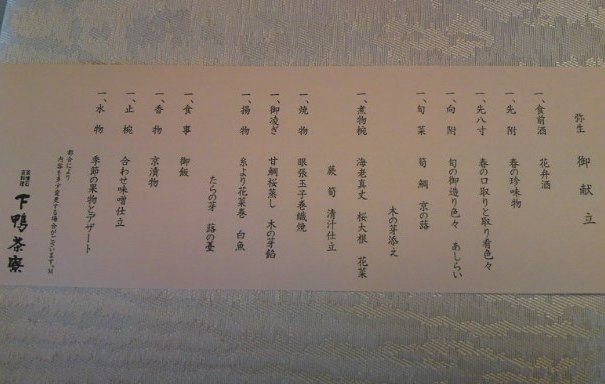 弥生 御献立
一、食前酒 花弁酒
一、先附 春の珍味物
一、先八寸 春の口取りと取り肴色々
一、向附 旬の御造り色々 あしらい
一、旬菜 筍 鯛 京の蕗
木の芽添え
一、煮物椀 海老真丈 桜大根 花菜
蕨 筍 清汁仕立
一、焼物 眼張玉子巻織焼
一、御凌ぎ 甘鯛桜蒸し 木の芽餡
一、揚物 糸より花菜巻 白魚
たらの芽 蕗の薹
一、食事 御飯
一、香物 京漬物
一、止椀 合わせ味噌仕立
一、水物 季節の果物とデザート
都合により
内容を多少変更する場合がございます。
下鴨茶寮